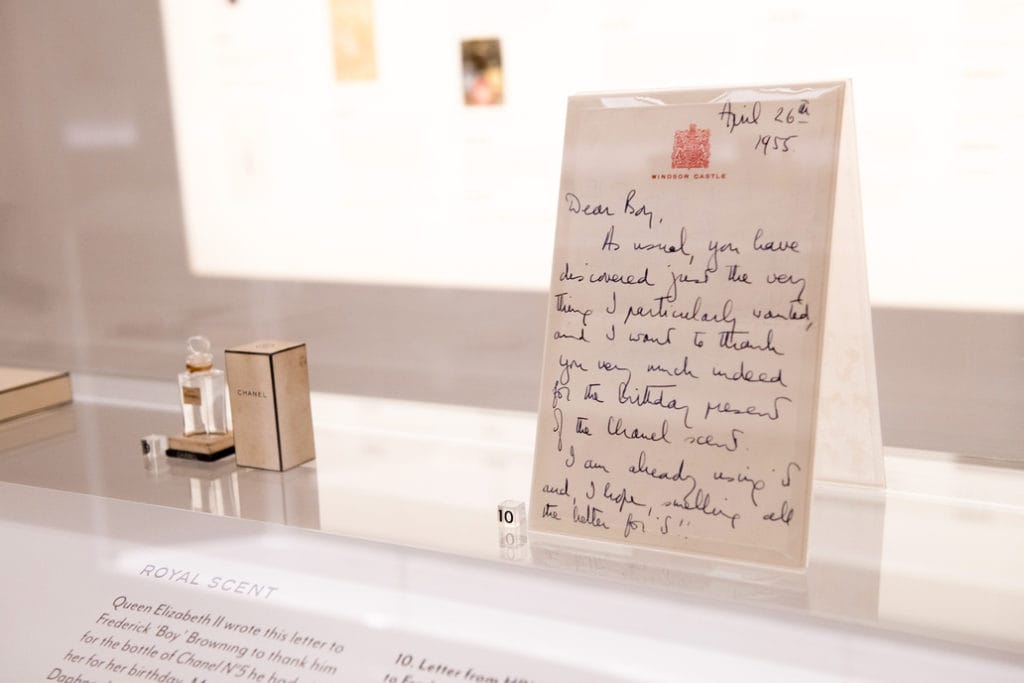 April 26th
1955.
WINDSOR CASTLE
Dear Boy,
As usual, you have
discovered just the very
thing I particularly wanted,
and I want to thank
you very much indeed
for the birthday present
of the Chanel scent.
I am already using it
and, I hope, smelling all
the better for it!!
CHANEL
10
ROYAL SCENT
Queen Elizabeth II wrote this letter to
Frederick 'Boy' Browning to thank him
for the bottle of Chanel N°5 he had
her for her birthday.
10. Letter from
to